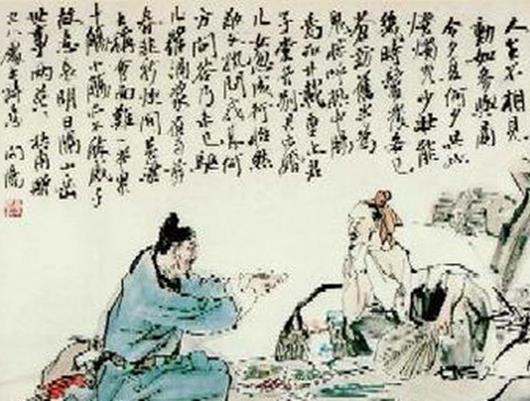 人生不相見
動如參與商
今夕何夕共此
燈燭光少壯能
幾時鬢髮各已
蒼訪舊半為
鬼驚呼熱中腸
焉知廿載重上君
子堂昔別君未婚
兒女忽成行怡然
敬父執問我來何
方問答乃未已驅
兒羅酒漿夜雨剪
春韭新炊間黃粱
主稱會面難一舉累
十觴十觴亦不醉感子
故意長明日隔山岳
世事兩茫茫 杜甫贈
衛八處士詩意